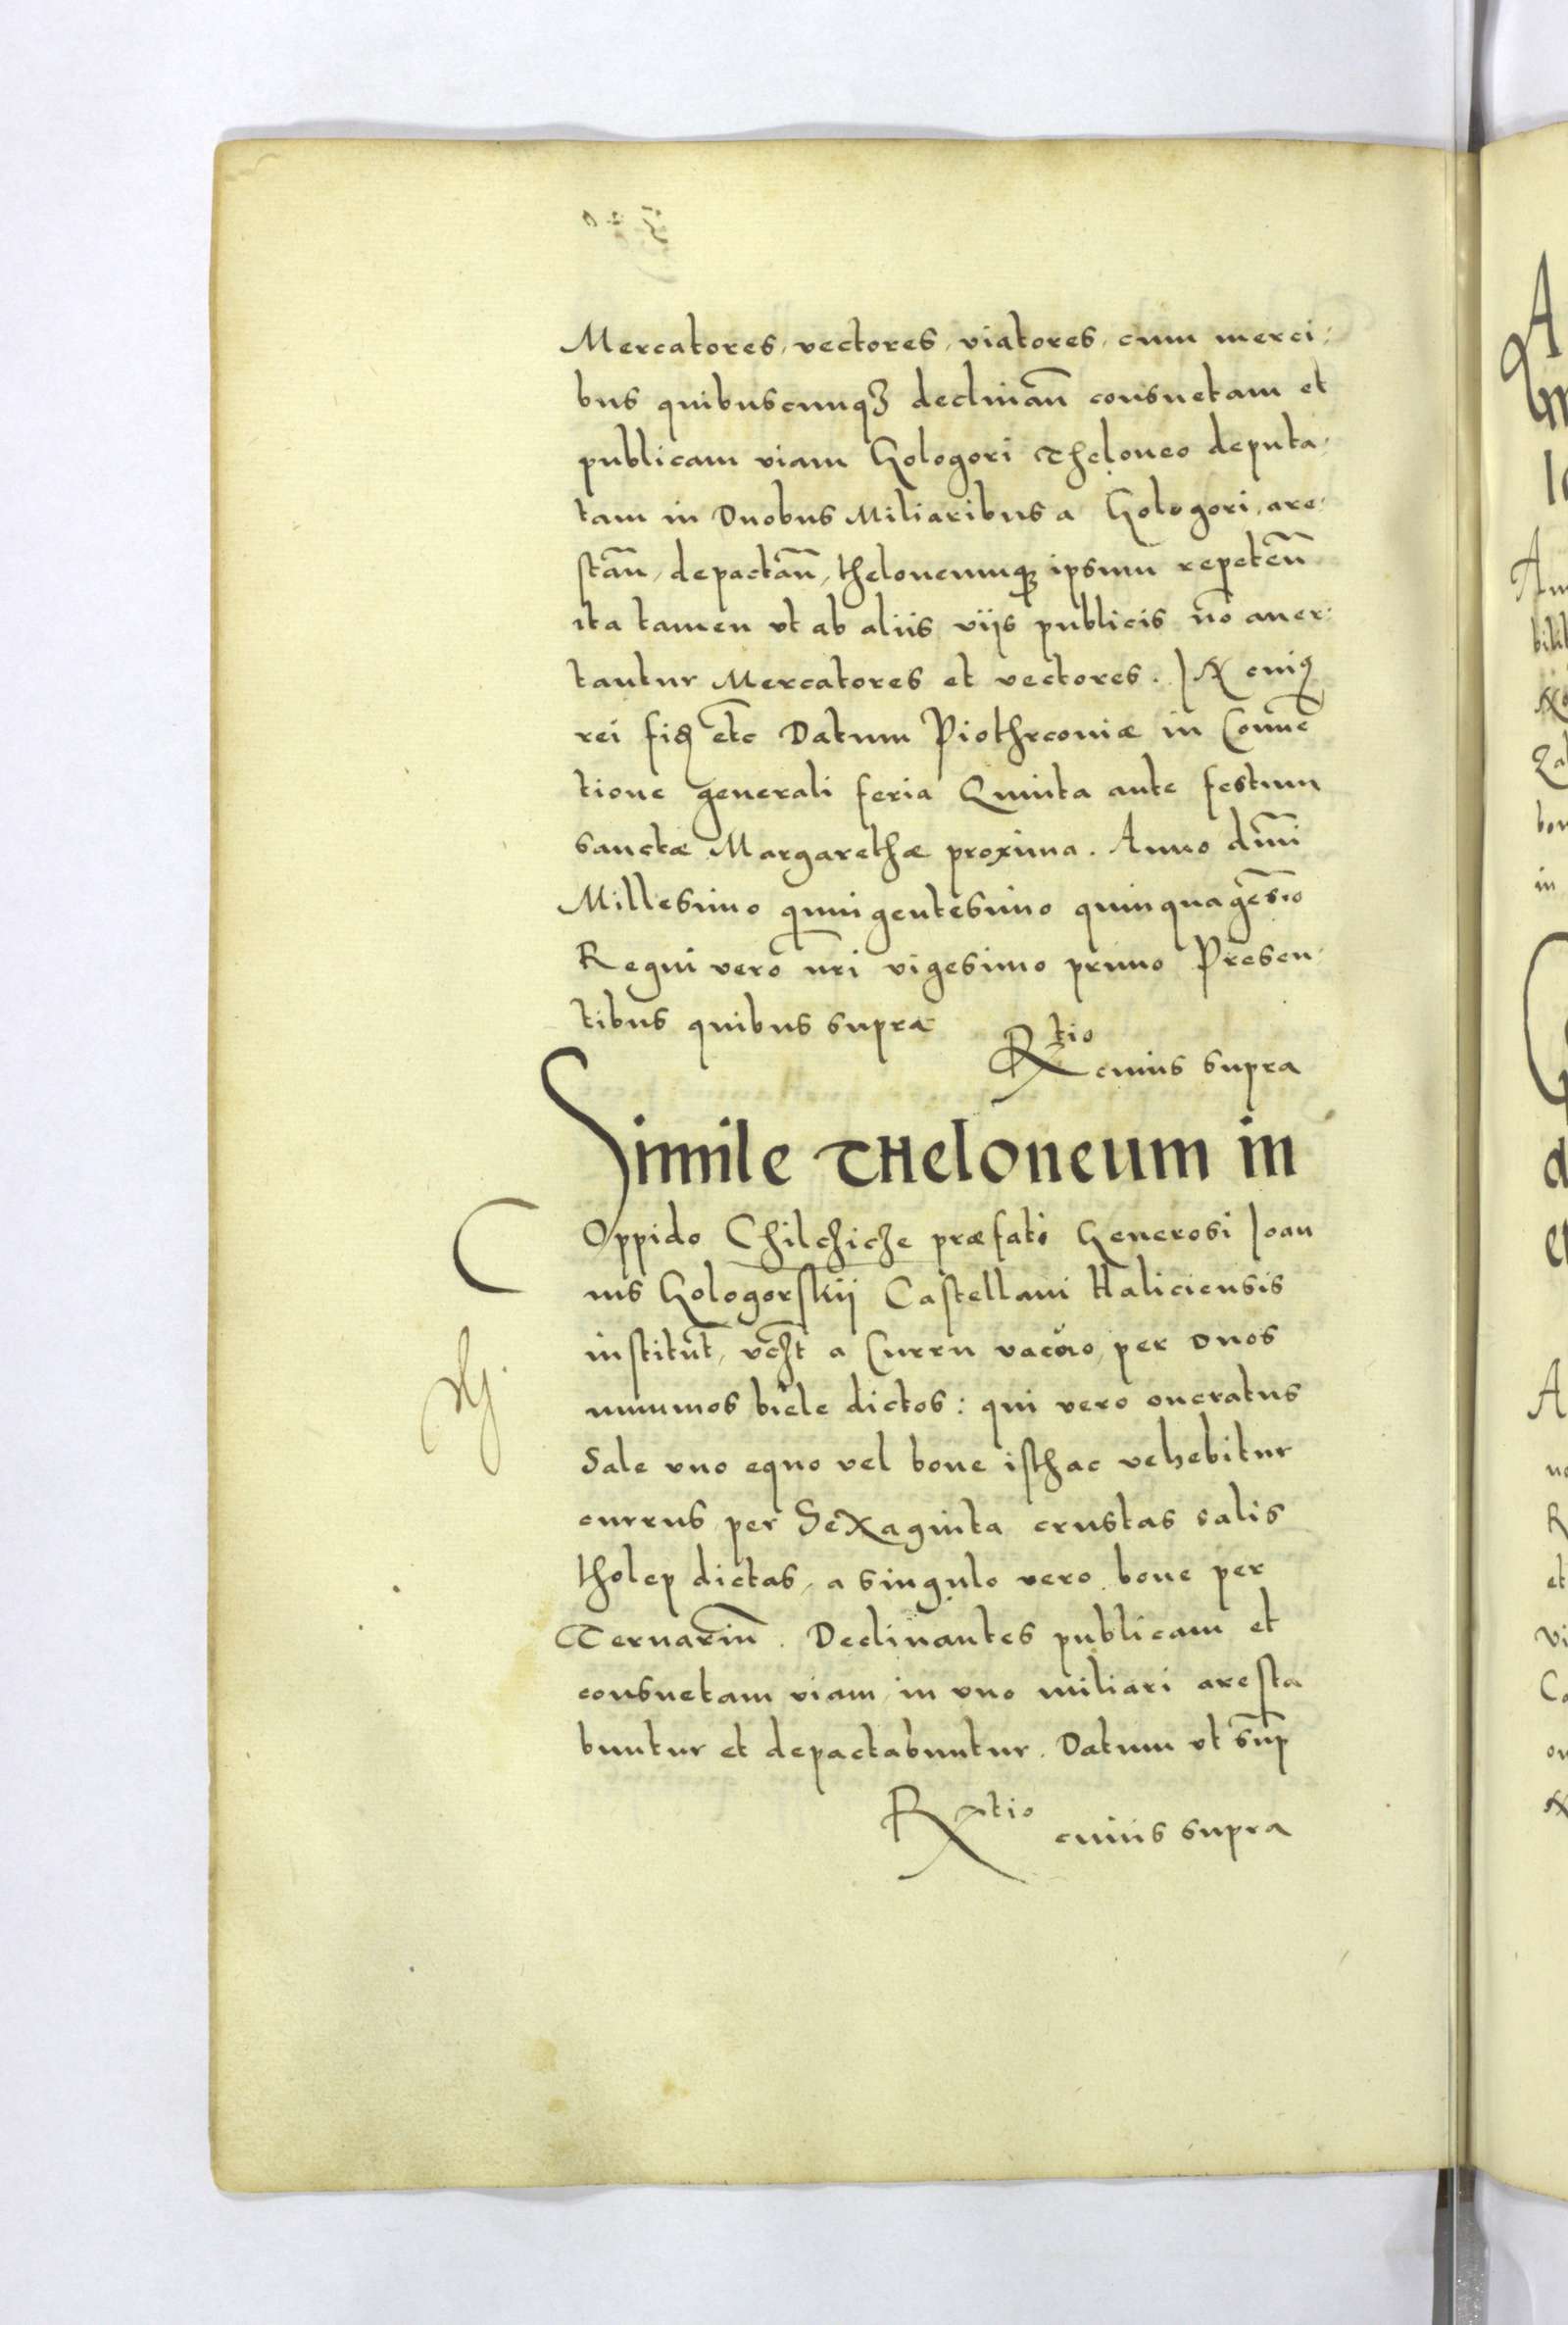 Mercatores, vectores, viatores, cum merci:
bus quibuscunqꝫ declinan̄ consuetam et
publicam viam Gologori Theloneo deputa:
tam in Duobus Miliaribus a Gologori, are:
stan̄, depactan̄, theloneumqꝫ ipsum repeten̄
ita tamen vt ab aliis viis publicis no̅ auer:
tantur Mercatores et vectores. In cuiꝰ
rei etc̄ Datum Piothrconiæ in Conue̅
tione generali feria Quinta ante festum
sanctæ Margarethæ proxima. Anno dn̄i
Millesimo quingentesimo quinquages̄io
Regni vero nr̄i vigesimo primo Presen:
tibus quibus supra
Rtio cuius supra
Simile THeloneum in
Oppido Chilchicze præfati Generosi Joan
nis Gologorskii Castellani Haliciensis
institut̄, vcz̄t a Curru vacuo, per Duos
nummos biele dictos: qui vero oneratus
Sale vno equo vel boue isthac vehebitur
currus, per Sexaginta crustas salis
tholep dictas, a singulo vero boue per
Ternariu̅. Declinantes publicam et
consuetam viam, in vno miliari aresta
buntur et depactabuntur. Datum vt sup̄
Ratio cuius supra